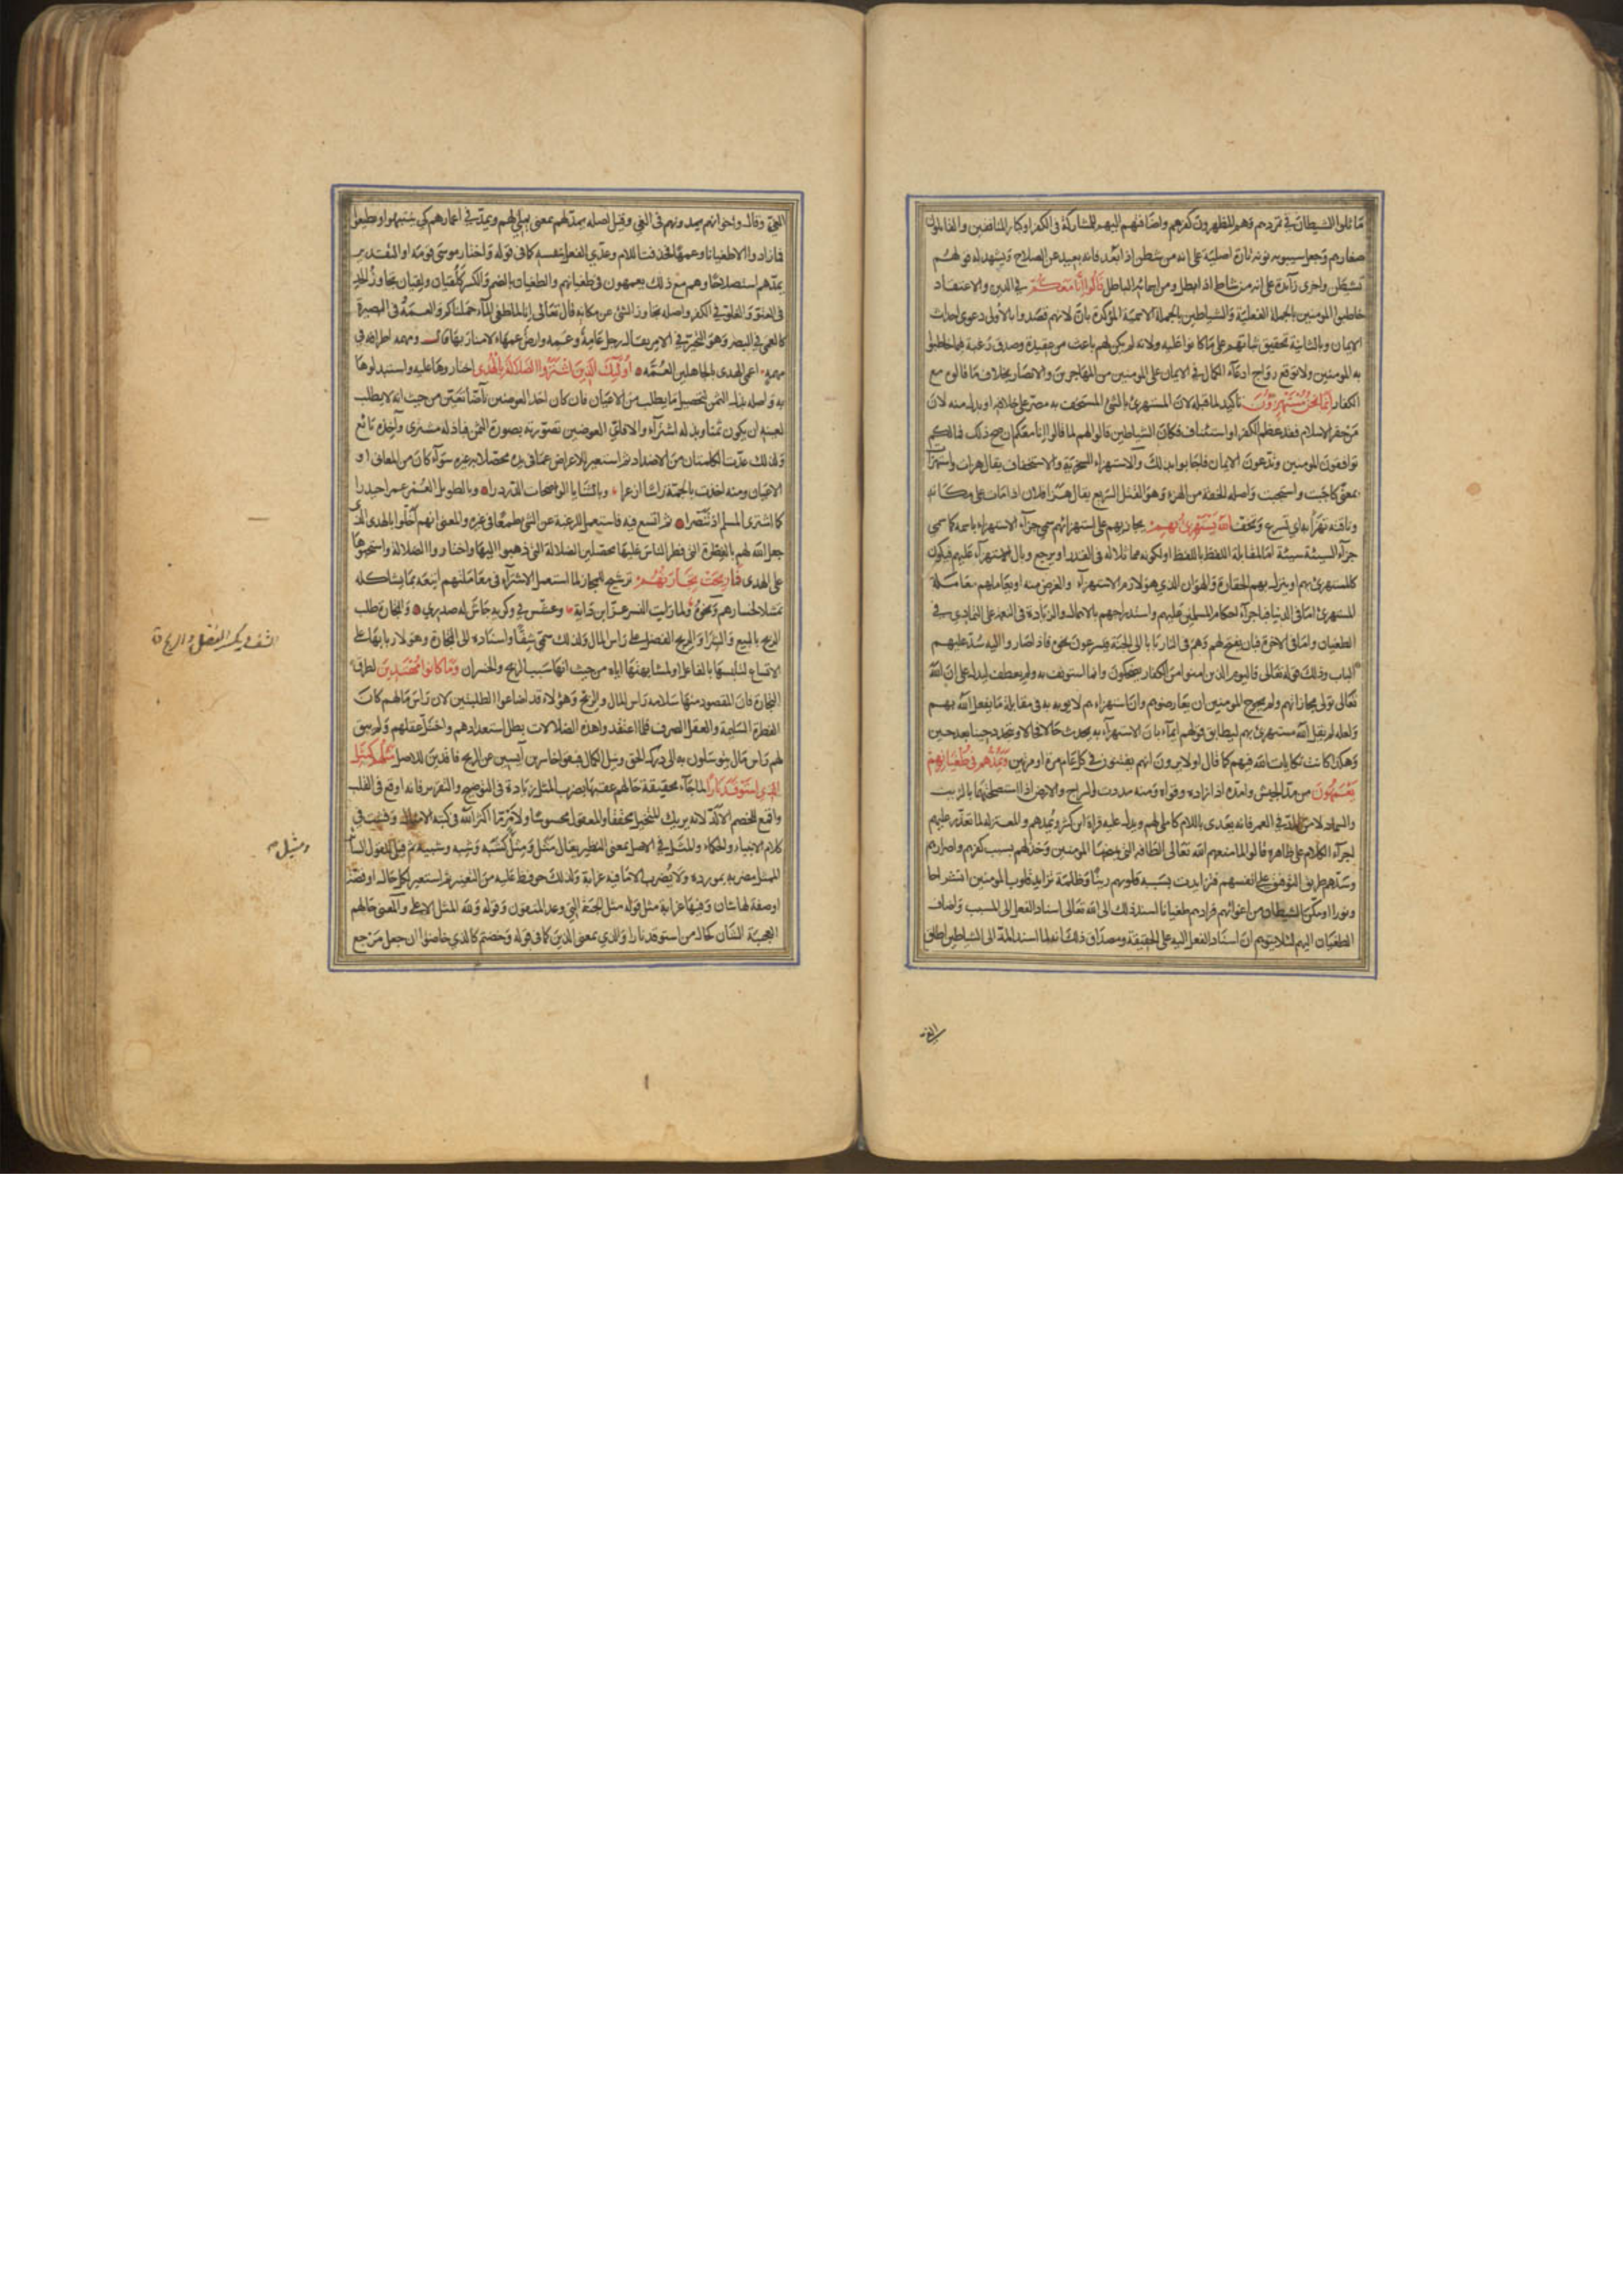 ماثلوا الشيطان في تمردهم وهم المظهرون كفرهم واضافتهم اليهم للمشاركة في الكفر او كبار المنافقين والقائلون
صغارهم وجعل سيبويه نونه تارة اصلية على انه من شطن اذا بعد فانه بعيد عن الصلاح ويشهد له قولهم
تشيطن واخرى زائدة على انه من شاط اذا بطل ومن اسمائه الباطل قالوا انا معكم في الدين والاعتقاد
خاطبوا المومنين بالجملة الفعلية والشياطين بالجملة الاسمية المؤكدة بان لانهم قصدوا بالاولى دعوى احداث
الايمان وبالثانية تحقيق ثباتهم على ما كانوا عليه ولانه لم يكن لهم باعث من عقيدة وصدق رغبة فيما خاطبوا
به المومنين ولا توقع رواج ادعاء الكمال في الايمان على المومنين من المهاجرين والانصار بخلاف ما قالوه مع
الكفار انما نحن مستهزؤن تاكيد لما قبله لان المستهزئ بالشئ المستخف به مصر على خلافه او بدل منه لان
من حقر الاسلام فقد عظم الكفر او استئناف فكان الشياطين قالوا لهم لما قالوا انا معكم ان صح ذلك فما لكم
توافقون المومنين وتدعون الايمان فاجابوا بذلك والاستهزاء السخرية والاستخفاف يقال هزات واستهزات
بمعنى كاجبت واستجبت واصله الخفة من الهزء وهو القتل السريع يقال هزا فلان اذا مات على مكانه
وناقته تهزا به اي تسرع وتخف الله يستهزئ بهم يجازيهم على استهزائهم سمي جزاء الاستهزاء باسمه كما سمي
جزاء السيئة سيئة اما لمقابلة اللفظ باللفظ او لكونه مماثلا له في القدر او يرجع وبال الاستهزاء عليهم فيكون
كالمستهزئ بهم او ينزل بهم الحقارة والهوان الذي هو لازم الاستهزاء والغرض منه او يعاملهم معاملة
المستهزئ اما في الدنيا فباجراء احكام المسلمين عليهم واستدراجهم بالامهال والزيادة في النعمة على التمادي في
الطغيان واما في الاخرة فبان يفتح لهم وهم في النار بابا الى الجنة فيسرعون نحوه فاذا صاروا اليه سد عليهم
الباب وذلك قوله تعالى فاليوم الذين امنوا من الكفار يضحكون وانما استونف به ولم يعطف ليدل على ان الله
تعالى تولى مجازاتهم ولم يحوج المومنين ان يعارضوهم وان استهزاءهم لا يوبه به في مقابلة ما يفعل الله بهم
ولعله لم يقل الله مستهزئ بهم ليطابق قولهم ايماء بان الاستهزاء به يحدث حالا فحالا ويتجدد حينا بعد حين
وهكذا كانت نكايات الله فيهم كما قال اولا يرون انهم يفتنون في كل عام مرة او مرتين ويمدهم في طغيانهم
يعمهون من مد الجيش وامده اذا زاده وقواه ومنه مددت السراج والارض اذا استصلحتهما بالزيت
والسماد لا من المد في العمر فانه يعدى باللام كاملى لهم ويدل عليه قراة ابن كثير ويمدهم والمعتزلة لما تعذر عليهم
اجراء الكلام على ظاهره قالوا لما منعهم الله تعالى الطافه التي يمنحها المومنين وخذلهم بسبب كفرهم واصرارهم
وسدهم طريق التوفيق على انفسهم فتزايدت بسببه قلوبهم رينا وظلمة تزايد قلوب المومنين انشراحا
ونورا او مكن الشيطان من اغوائهم فزادهم طغيانا اسند ذلك الى الله تعالى اسناد الفعل الى المسبب واضاف
الطغيان اليهم لئلا يتوهم ان اسناد الفعل اليه على الحقيقة ومصداق ذلك انه لما اسند المد الى الشياطين اطلق
الغي
الغي وقال واخوانهم يمدونهم في الغي وقيل اصله يمد لهم بمعنى يملي لهم ويمد في اعمارهم كي يتنبهوا او يطيعوا
فما زادوا الا طغيانا وعمها فحذفت اللام وعدي الفعل بنفسه كما في قوله واختار موسى قومه او التقدير
يمدهم استصلاحا وهم مع ذلك يعمهون في طغيانهم والطغيان بالضم والكسر كلقيان ولقيان تجاوز الحد
في العتو والغلو في الكفر واصله تجاوز الشئ عن مكانه قال تعالى انا لما طغى الماء حملناكم والعمه في البصيرة
كالعمى في البصر وهو التحير في الامر يقال رجل عامه وعمه وارض عمهاء لا منار بها قال ومهمه اطرافه في
مهمه اعمى الهدى بالجاهلين العمه اولئك الذين اشتروا الضلالة بالهدى اختاروها عليه واستبدلوها
به واصله بذل الثمن لتحصيل ما يطلب من الاعيان فان كان احد العوضين ناضا تعين من حيث انه لا يطلب
لعينه ان يكون ثمنا وبذله اشتراء والا فاي العوضين تصورته بصورة الثمن فباذله مشتري واخذه بائع
ولذلك عدت الكلمتان من الاضداد ثم استعير للاعراض عما في يده محصلا به غيره سواء كان من المعاني او
الاعيان ومنه اخذت بالجمة راسا ازعرا وبالثنايا الواضحات الدردرا وبالطويل العمر عمرا حيدرا
كما اشترى المسلم اذ تنصرا ثم اتسع فيه فاستعمل للرغبة عن الشئ طمعا في غيره والمعنى انهم اخلوا بالهدى الذي
جعل الله لهم بالفطرة التي فطر الناس عليها محصلين الضلالة التي ذهبوا اليها واختاروا الضلالة واستحبوها
على الهدى فما ربحت تجارتهم ترشيح للمجاز لما استعمل الاشتراء في معاملتهم اتبعه بما يشاكله
تمثيلا لخسارهم ونحوه ولما رايت النسر عز ابن داية وعشش في وكريه جاش له صدري والتجارة طلب
الربح بالبيع والشرا والربح الفضل على راس المال ولذلك سمي شفا واسناده الى التجارة وهو لاربابها على
الاتساع لتلبسها بالفاعل او لمشابهتها اياه من حيث انها سبب الربح والخسران وما كانوا مهتدين لطرق
التجارة فان المقصود منها سلامة راس المال والربح وهؤلاء قد اضاعوا الطلبتين لان راس مالهم كان
الفطرة السليمة والعقل الصرف فلما اعتقدوا هذه الضلالات بطل استعدادهم واختل عقلهم ولم يبق
لهم راس مال يتوسلون به الى درك الحق ونيل الكمال فبقوا خاسرين آيسين عن الربح فاقدين للاصل مثلهم كمثل
الذي استوقد نارا لما جاء بحقيقة حالهم عقبها بضرب المثل زيادة في التوضيح والتقرير فانه اوقع في القلب
واقمع للخصم الالد لانه يريك المتخيل محققا والمعقول محسوسا ولامر ما اكثر الله في كتبه الامثال وفشت في
كلام الانبياء والحكماء والمثل في الاصل بمعنى النظير يقال مثل ومثل كشبه وشبه وشبيه ثم قيل للقول السائر
الممثل مضربه بمورده ولا يضرب الا ما فيه غرابة ولذلك حوفظ عليه من التغيير ثم استعير لكل حال او قصة
او صفة لها شان وفيها غرابة مثل قوله مثل الجنة التي وعد المتقون وقوله ولله المثل الاعلى والمعنى حالهم
العجيبة الشان كحال من استوقد نارا والذي بمعنى الذين كما في قوله وخضتم كالذي خاضوا ان جعل مرجع
الشف بكسر الفضل والربح
ومثيل صح